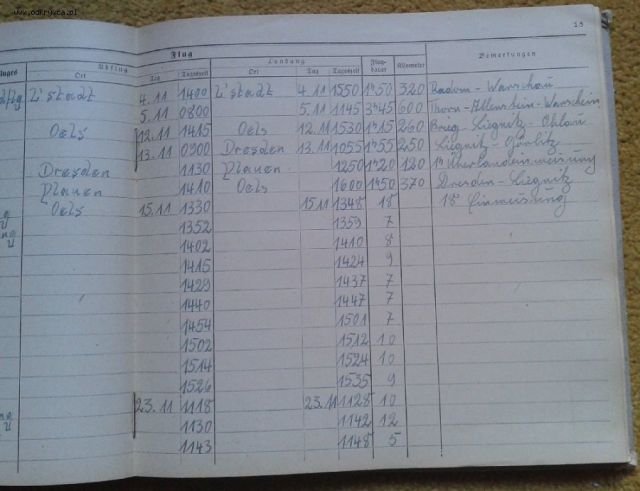 www.odkrywca.pl
15
Flug
Abflug Landung Flug-dauer Kilometer Bemerkungen
Fluges Ort Tag Tageszeit Ort Tag Tageszeit
L'stadt 4.11 1400 L'stadt 4.11 1550 1h50 320 Radom-Warschau
5.11 0800 5.11 1145 3h45 600 Thorn-Allenstein-Warschau
Oels 12.11 1415 Oels 12.11 1530 1h15 260 Brieg-Liegnitz-Ohlau
13.11 0900 Dresden 13.11 1055 1h55 250 Liegnitz-Görlitz
Dresden 1130 Plauen 1250 1h20 120 Überlandeinweisung
Plauen 1410 Oels 1600 1h50 370 Dresden-Liegnitz
Oels 15.11 1330 15.11 1348 18 Einweisung
1352 1359 7
1402 1410 8
1415 1424 9
1429 1437 7
1440 1447 7
1454 1501 7
1502 1512 10
1514 1524 10
1526 1535 9
23.11 1118 23.11 1128 10
1130 1142 12
1143 1148 5